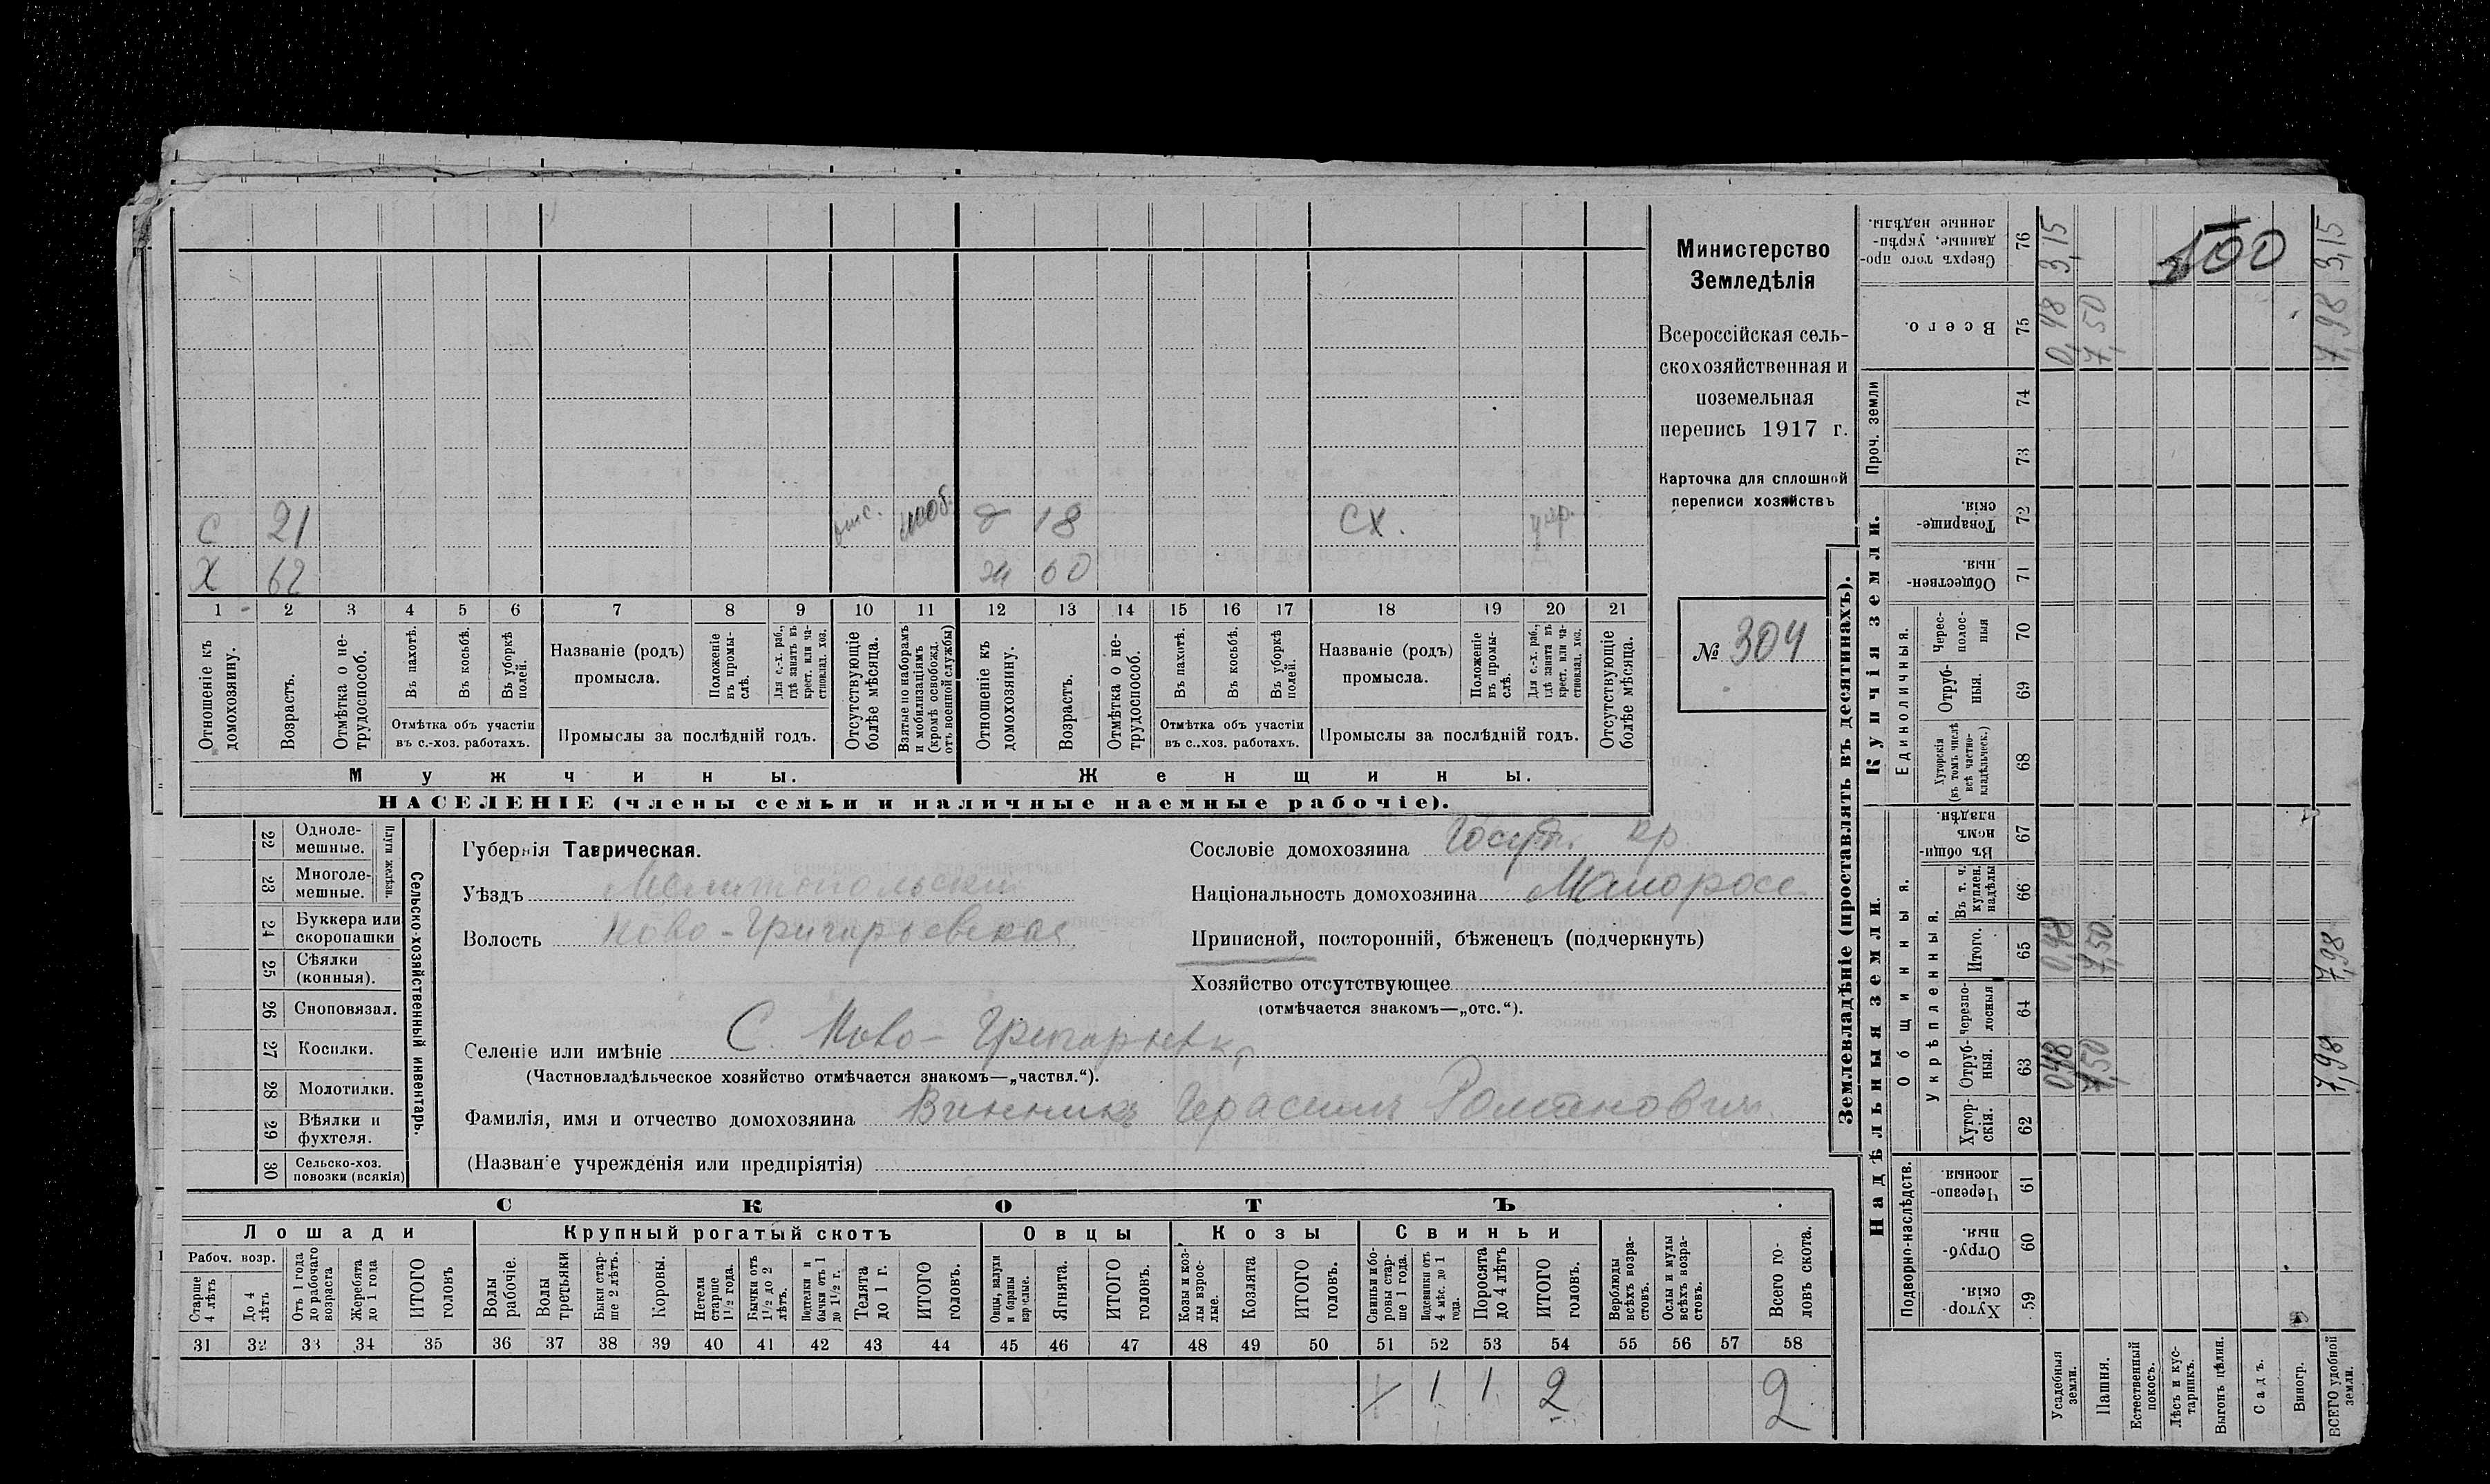 С 21 отс. моб. д 18 СХ.
Х 62 ж 60
1 2 3 4 5 6 7 8 9 10 11 12 13 14 15 16 17 18 19 20 21
Отношеніе къ домохозяину.
Возрастъ.
Отмѣтка о не-
трудоспособ.
Въ пахотѣ.
Въ косьбѣ.
Въ уборкѣ
полей.
Отмѣтка объ участіи
въ с.-хоз. работахъ.
Названіе (родъ)
промысла.
Положеніе
въ промы-
слѣ.
Для с.-х. раб.,
гдѣ занятъ въ
крест. или ча-
стновлад. хоз.
Промыслы за послѣдній годъ.
Отсутствующіе
болѣе мѣсяца.
Взятые по наборамъ
и мобилизаціямъ
(кромѣ освобожд.
отъ военной службы)
Отношеніе къ
домохозяину.
Возрастъ.
Отмѣтка о не-
трудоспособ.
Въ пахотѣ.
Въ косьбѣ.
Въ уборкѣ
полей.
Отмѣтка объ участіи
въ с..хоз. работахъ.
Названіе (родъ)
промысла.
Положеніе
въ промы-
слѣ.
Для с.-х. раб.,
гдѣ занята въ
крест. или ча-
стновлад. хоз.
Промыслы за послѣдній годъ.
Отсутствующіе
болѣе мѣсяца.
Мужчины.
Женщины.
НАСЕЛЕНІЕ (члены семьи и наличные наемные рабочіе).
Министерство
Земледѣлія
Всероссійская сель-
скохозяйственная и
поземельная
перепись 1917 г.
Карточка для сплошной
переписи хозяйствъ
№ 304
22 Одноле-
мешные.
23 Многоле-
мешные.
Плуги желѣзн.
24 Буккера или
скоропашки
25 Сѣялки
(конныя).
26 Сноповязал.
27 Косилки.
28 Молотилки.
29 Вѣялки и
фухтеля.
30 Сельско-хоз.
повозки (всякія)
Сельско-хозяйственный инвентарь.
Губернія Таврическая.
Уѣздъ Мелитопольскій
Волость Ново-Григорьевская
Селеніе или имѣніе С. Ново-Григорьевка
(Частновладѣльческое хозяйство отмѣчается знакомъ—„частвл.“).
Фамилія, имя и отчество домохозяина Винникъ Герасимъ Романовичъ
(Названіе учрежденія или предпріятія)
Сословіе домохозяина Госуд. кр
Національность домохозяина Малоросс
Приписной, посторонній, бѣженецъ (подчеркнуть)
Хозяйство отсутствующее
(отмѣчается знакомъ—„отс.“).
СКОТЪ
Лошади
Крупный рогатый скотъ
Овцы
Козы
Свиньи
Рабоч. возр.
Старше
4 лѣтъ
До 4
лѣтъ
Отъ 1 года
до рабочаго
возраста
Жеребята
до 1 года
ИТОГО
головъ
Волы
рабочіе.
Волы
третьяки
Быки стар-
ше 2 лѣтъ.
Коровы.
Нетели
старше
1½ года.
Бычки отъ
1½ до 2
лѣтъ.
Подтелки и
бычки отъ 1
до 1½ г.
Телята
до 1 г.
ИТОГО
головъ.
Овцы, валухи
и бараны
взрослые.
Ягнята.
ИТОГО
головъ.
Козы и коз-
лы взрос-
лые.
Козлята
ИТОГО
головъ.
Свиньи и бо-
ровы стар-
ше 1 года.
Подсвинки отъ
4 мѣс. до 1
года.
Поросята
до 4 лѣтъ
ИТОГО
головъ.
Верблюды
всѣхъ возра-
стовъ.
Ослы и мулы
всѣхъ возра-
стовъ.
Всего го-
ловъ скота.
31 32 33 34 35 36 37 38 39 40 41 42 43 44 45 46 47 48 49 50 51 52 53 54 55 56 57 58
1 1 2 2
Землевладѣніе (проставлять въ десятинахъ).
Купчія земли.
Проч. земли
Единоличныя.
Надѣльныя земли.
Общинныя.
Укрѣпленныя.
Подворно-наслѣдств.
Сверхъ того про-
данные, укрѣп-
ленные надѣлы.
76 3,15 3,15
500
Всего.
75 0,48 7,50 7,98
74
73
Товарище-
скія.
72
Обществен-
ныя.
71
Черес-
полос-
ныя
70
Отруб-
ныя.
69
Хуторскія
(въ томъ числѣ
всѣ частно-
владѣльческ.)
68
Въ общи-
номъ
владѣн.
67
Въ т. ч.
куплен.
надѣлы
66
Итого.
65 0,48 7,50 7,98
Черезпо-
лосныя
64
Отруб-
ныя.
63 0,48 7,50 7,98
Хутор-
скія.
62
Черезпо-
лосныя
61
Отруб-
ныя.
60
Хутор-
скія.
59
Усадебныя
земли.
Пашня.
Естественный
покосъ.
Лѣсъ и кус-
тарникъ.
Выгонъ цѣлин.
Садъ.
Виногр.
ВСЕГО удобной
земли.